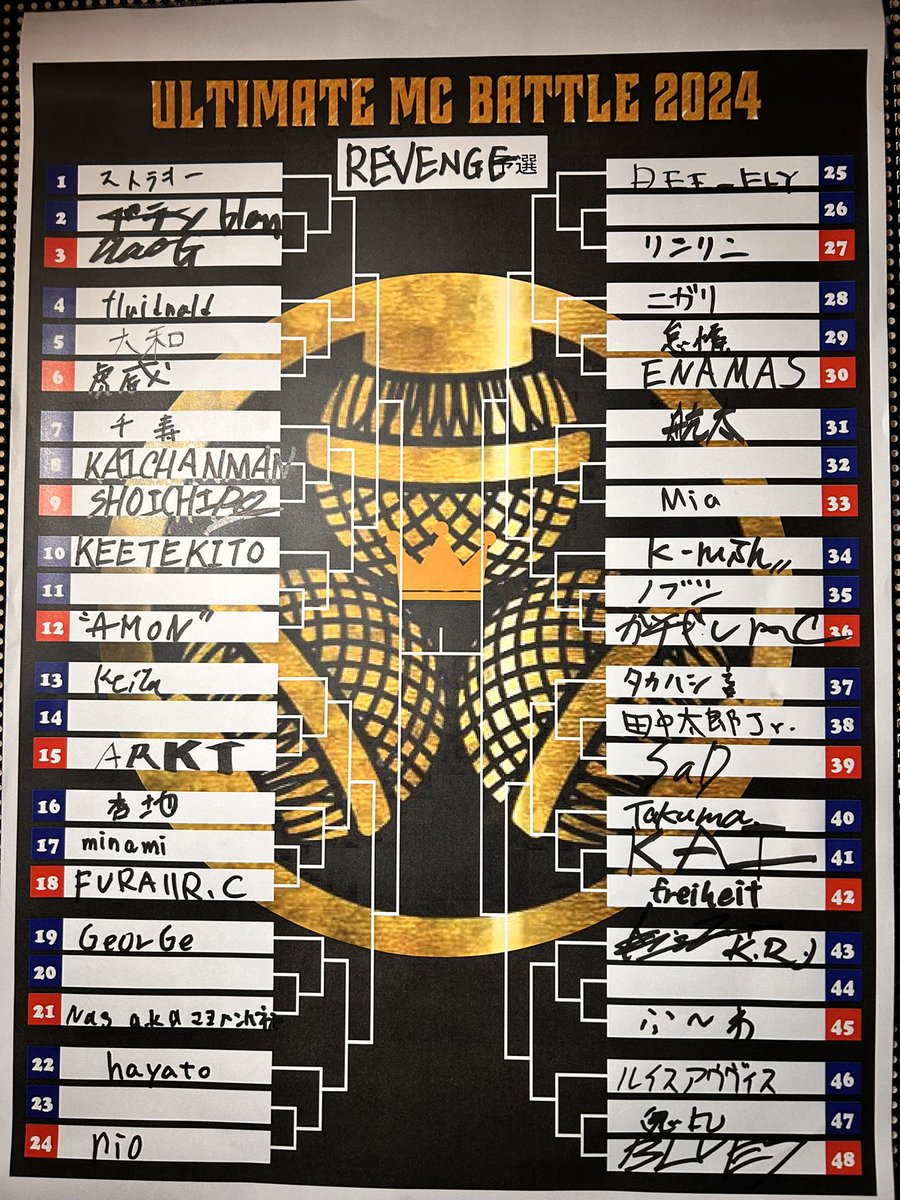 ULTIMATE MC BATTLE 2024
REVENGE予選
1 ストラオー
2
3 NaoG
4
5 大和
6
7 千寿
8 KAICHANMAN
9 SHOICHIRO
10 KEETEKITO
11
12 "AMON"
13 Keita
14
15 ARKT
16 杏地
17 minami
18 FURAIIR.C
19 GeorGe
20
21 Nas aka
22 hayato
23
24 nio
25 DEE-FLY
26
27 リンリン
28 ニガリ
29 怠惰
30 ENAMAS
31 航太
32
33 Mia
34
35 ノブシ
36
37 タカハシ
38 田中太郎Jr.
39 SaD
40 Takuma
41 KAI
42 freiheit
43 K.R.J
44
45 ふ〜わ
46 ルイスアヴヴィス
47
48